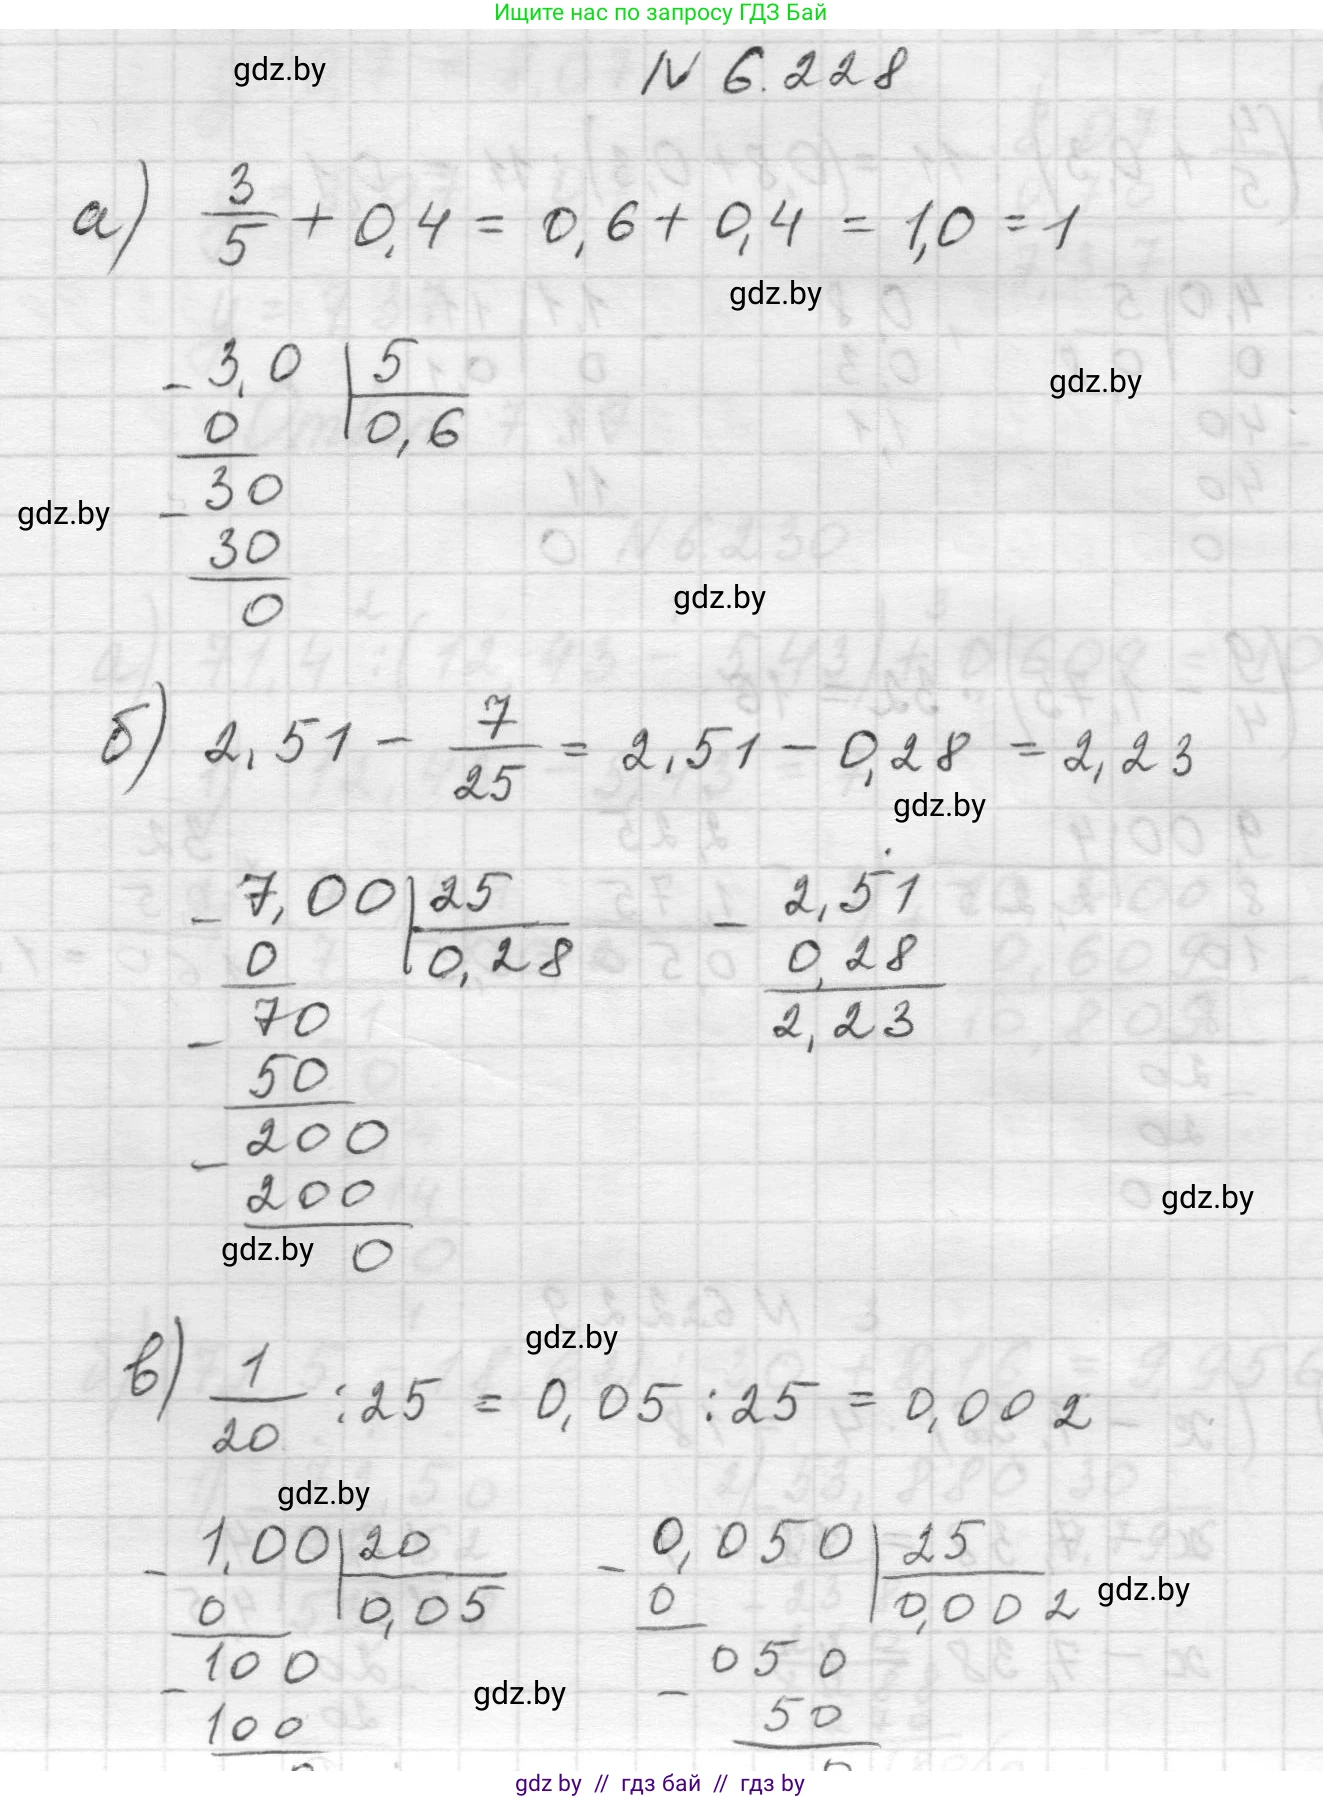 Ищите нас по запросу ГДЗ Бай
gdz.by
N 6.228
а) 3/5 + 0,4 = 0,6 + 0,4 = 1,0 = 1
gdz.by
- 3,0 | 5
gdz.by
0 | 0,6
- 30
gdz.by
30
0
gdz.by
б) 2,51 - 7/25 = 2,51 - 0,28 = 2,23
gdz.by
- 7,00 | 25 - 2,51
0 | 0,28 0,28
- 70 2,23
50
- 200
200
gdz.by
gdz.by
0
gdz.by
в) 1/20 : 25 = 0,05 : 25 = 0,002
gdz.by
- 1,00 | 20 - 0,050 | 25
gdz.by
0 | 0,05 0 | 0,002
- 100 - 050
gdz.by
100 50
gdz by // гдз бай // гдз by